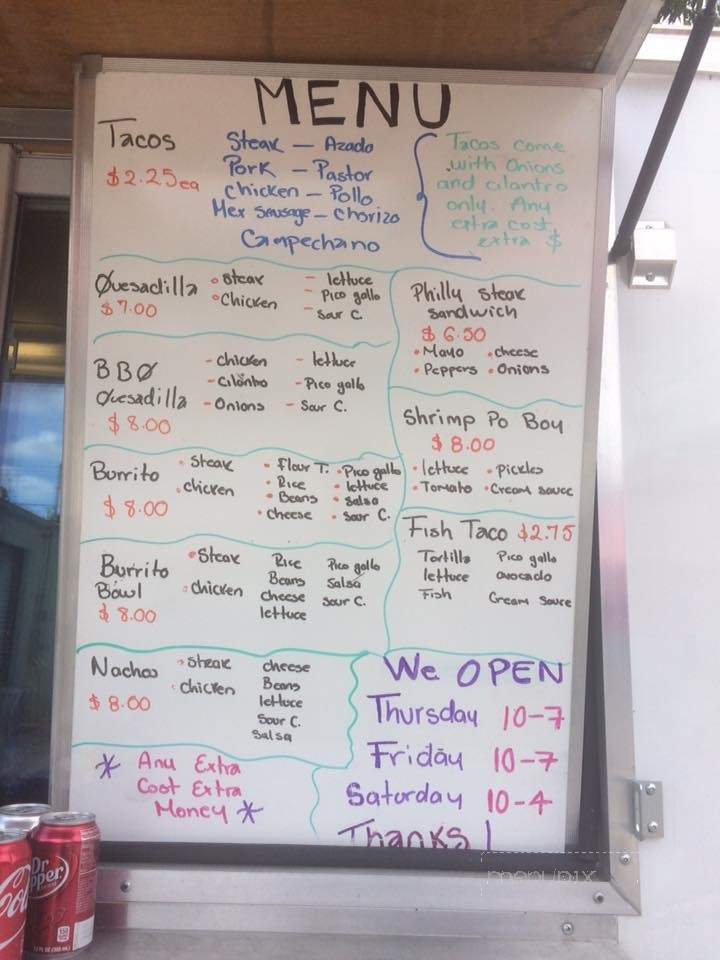 MENU
Tacos
$2.25ea
Steak — Azado
Pork — Pastor
chicken — Pollo
Mex Sausage — Chorizo
Campechano
Tacos come
with Onions
and cilantro
only. Any
extra cost
extra $
Quesadilla
$7.00
Steak
Chicken
- lettuce
- Pico gallo
- Sour C.
BBQ
Quesadilla
$8.00
- chicken
- Cilantro
- Onions
- lettuce
- Pico gallo
- Sour C.
Burrito
$8.00
Steak
chicken
Flour T.
Rice
Beans
cheese
Pico gallo
lettuce
Salsa
Sour C.
Burrito
Bowl
$8.00
Steak
chicken
Rice
Beans
cheese
lettuce
Pico gallo
Salsa
Sour C.
Nachos
$8.00
Steak
chicken
cheese
Beans
lettuce
Sour C.
Salsa
* Any Extra
Cost Extra
Money *
Philly Steak
Sandwich
$6.50
• Mayo • cheese
• Peppers • Onions
Shrimp Po Boy
$8.00
• lettuce • Pickles
• Tomato • Cream sauce
Fish Taco $2.75
Tortilla Pico gallo
lettuce avocado
Fish Cream Sauce
We OPEN
Thursday 10-7
Friday 10-7
Saturday 10-4
Thanks!
Dr
Pepper
menupix